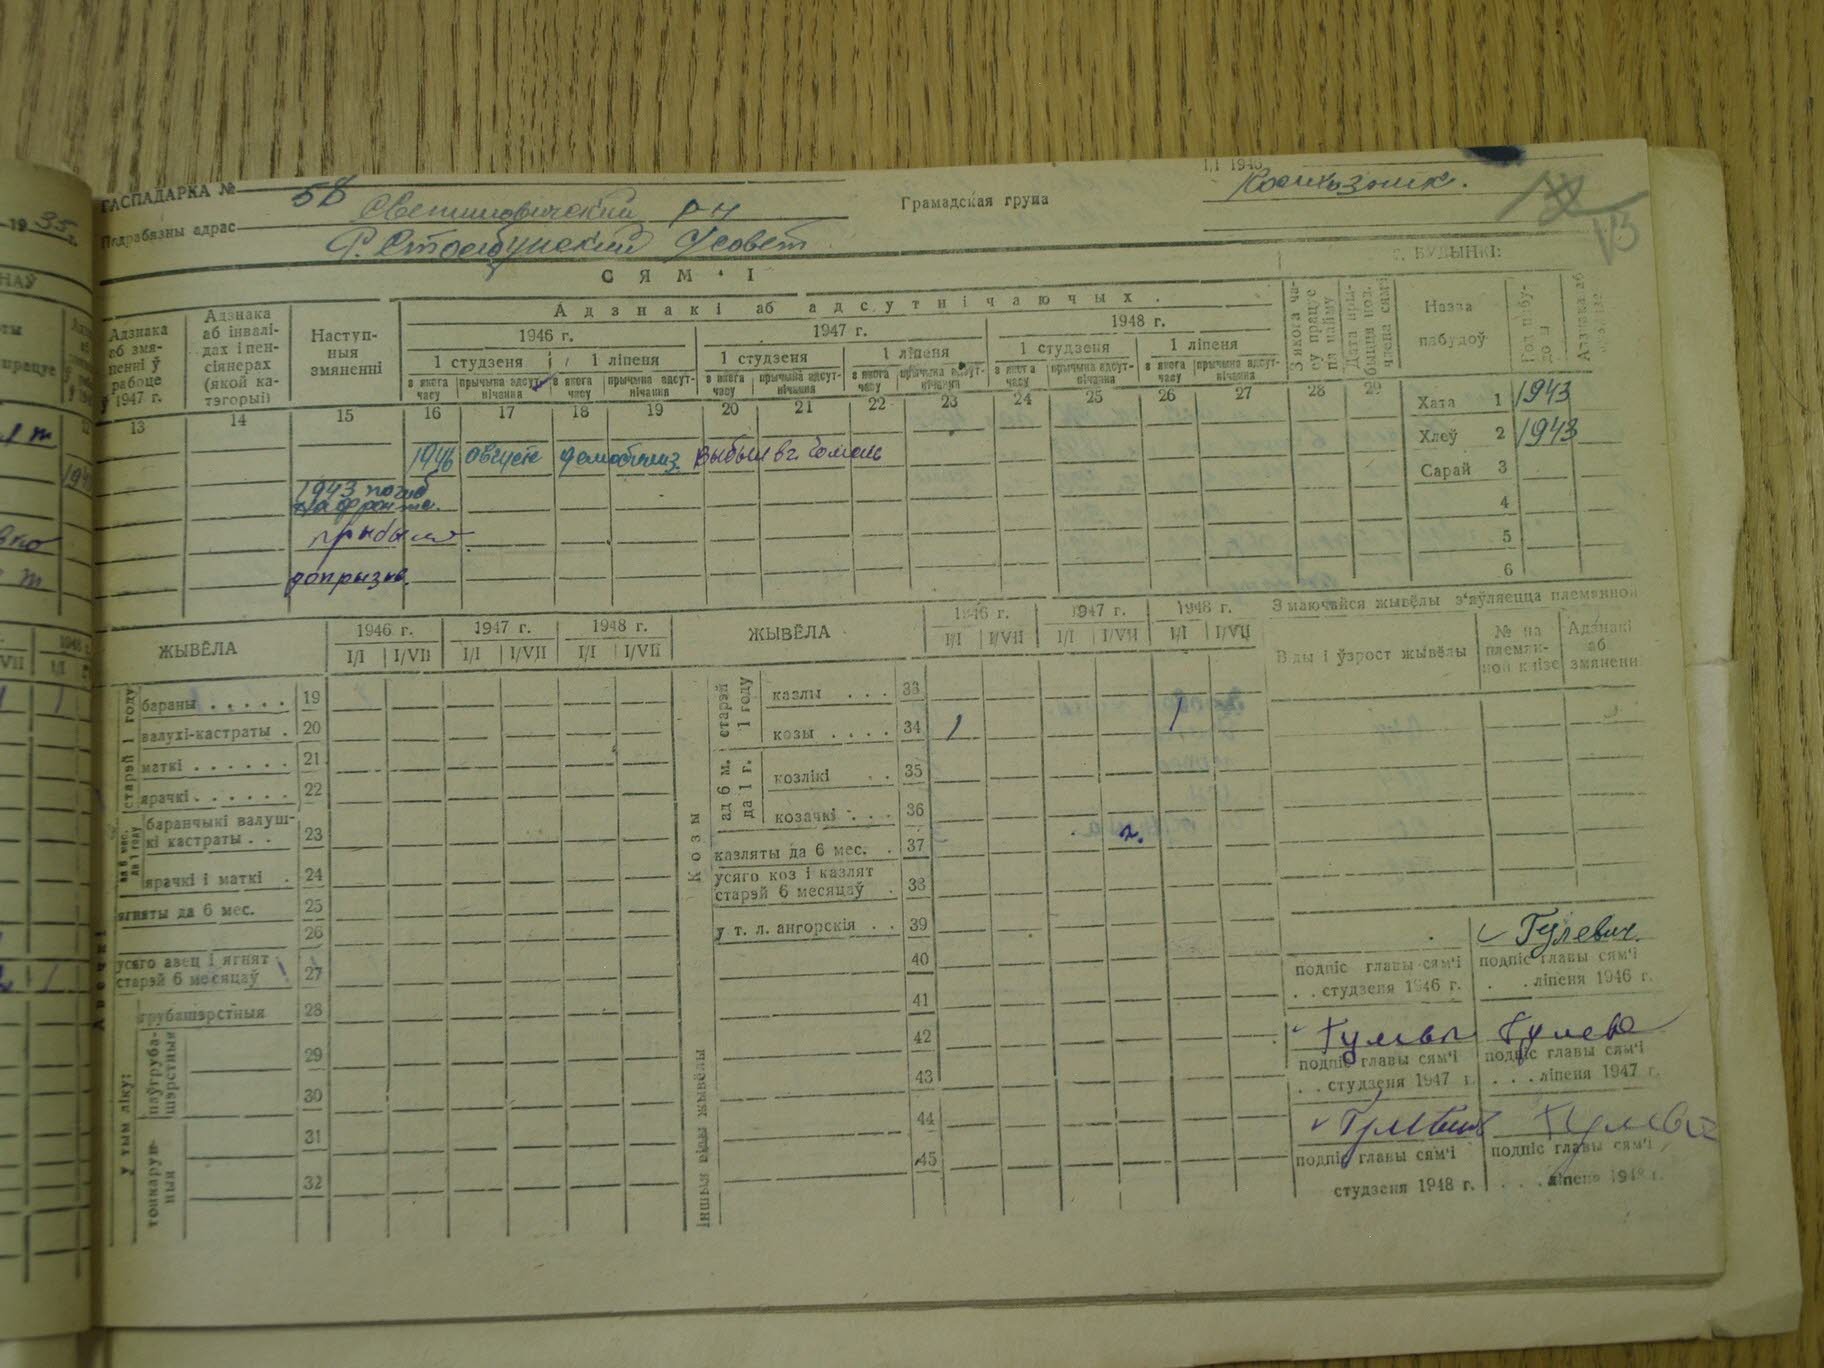 19 35 г.
ГАСПАДАРКА № 58
Падрабязны адрас
Светиловичский р-н
Р. Столбунский С/совет
Грамадская група
I/I 1946
Колхозник.
113
С Я М ' І
БУДЫНКІ:
Адзнака аб змяненні ў рабоце ў 1947 г.
Адзнака аб інвалідах і пенсіянерах (якой катэгорыі)
Наступныя змяненні
Адзнакі аб адсутнічаючых.
1946 г. 1947 г. 1948 г.
1 студзеня 1 ліпеня 1 студзеня 1 ліпеня 1 студзеня 1 ліпеня
з якога часу прычына адсутнічання з якога часу прычына адсутнічання з якога часу прычына адсутнічання з якога часу прычына адсутнічання з якога часу прычына адсутнічання з якога часу прычына адсутнічання
З якога часу працуе па найму
Назва пабудоў
13 14 15 16 17 18 19 20 21 22 23 24 25 26 27 28 29
Хата 1 1943
Хлеў 2 1943
Сарай 3
4
5
6
1946 августе демобилиз. выбыл в г. Гомель
1943 погиб
на фронте.
прибыл
допризыв.
ЖЫВЁЛА
1946 г. 1947 г. 1948 г.
I/I I/VII I/I I/VII I/I I/VII
ЖЫВЁЛА
1946 г. 1947 г. 1948 г.
I/I I/VII I/I I/VII I/I I/VII
З маючайся жывёлы з'яўляецца племянной
Віды і ўзрост жывёлы
№ па племяной кнізе
Адзнакі аб змяненні
Авечкі
старэй 1 году
бараны . . . . . 19
валухі-кастраты . 20
маткі . . . . . . 21
ярачкі . . . . . . 22
ад 6 мес. да 1 году
баранчыкі валушкі кастраты . . 23
ярачкі і маткі . 24
ягняты да 6 мес. 25
26
усяго авец і ягнят
старэй 6 месяцаў 27
у тым ліку:
грубашэрстныя 28
паўгрубашэрстныя
29
30
тонкарунныя
31
32
Козы
старэй 1 году
казлы . . . 33
козы . . . . 34 1 1
ад 6 м. да 1 г.
козлікі . . 35
козачкі . . . 36
казляты да 6 мес. . 37 2.
усяго коз і казлят
старэй 6 месяцаў . 38
у т. л. ангорскія . . 39
40
41
Іншыя віды жывёлы
42
43
44
45
Гулевич.
подпіс главы сям'і подпіс главы сям'і
. . студзеня 1946 г. . . ліпеня 1946 г.
подпіс главы сям'і подпіс главы сям'і
. . студзеня 1947 г. . . . ліпеня 1947 г.
подпіс главы сям'і подпіс главы сям'і
студзеня 1948 г. . . . ліпеня 1948 г.